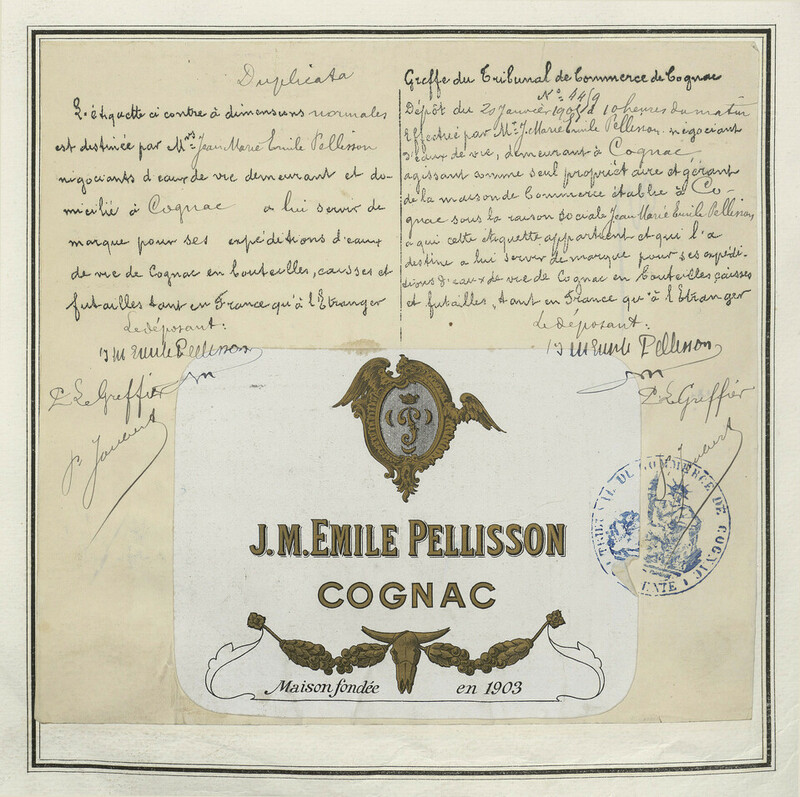 Duplicata
L'étiquette ci contre à dimensions normales
est destinée par Mr Jean Marie Emile Pellisson
négociants d'eaux de vie demeurant et do-
micilié à Cognac a lui servir de
marque pour ses expéditions d'eaux
de vie de Cognac en bouteilles, caisses et
futailles tant en France qu'à l'Etranger
Le déposant:
J M Emile Pellisson
P Le Greffier
P Joubert
Greffe du Tribunal de Commerce de Cognac
No 4459
Dépôt du 20 Janvier 1905 à 10 heures du matin
Effectué par Mr J. Marie Emile Pellisson, négociant
d'eaux de vie, demeurant à Cognac,
agissant comme seul propriétaire et gérant
de la maison de Commerce établie à Co-
gnac sous la raison sociale Jean Marie Emile Pellisson,
à qui cette étiquette appartient et qui l'a
destine a lui servir de marque pour ses expédi-
tions d'eaux de vie de Cognac en bouteilles caisses
et futailles, tant en France qu'à l'Etranger
Le déposant:
J M Emile Pellisson
P Le Greffier
Joubert
TRIBUNAL DE COMMERCE DE COGNAC
J.M.EMILE PELLISSON
COGNAC
Maison fondée en 1903